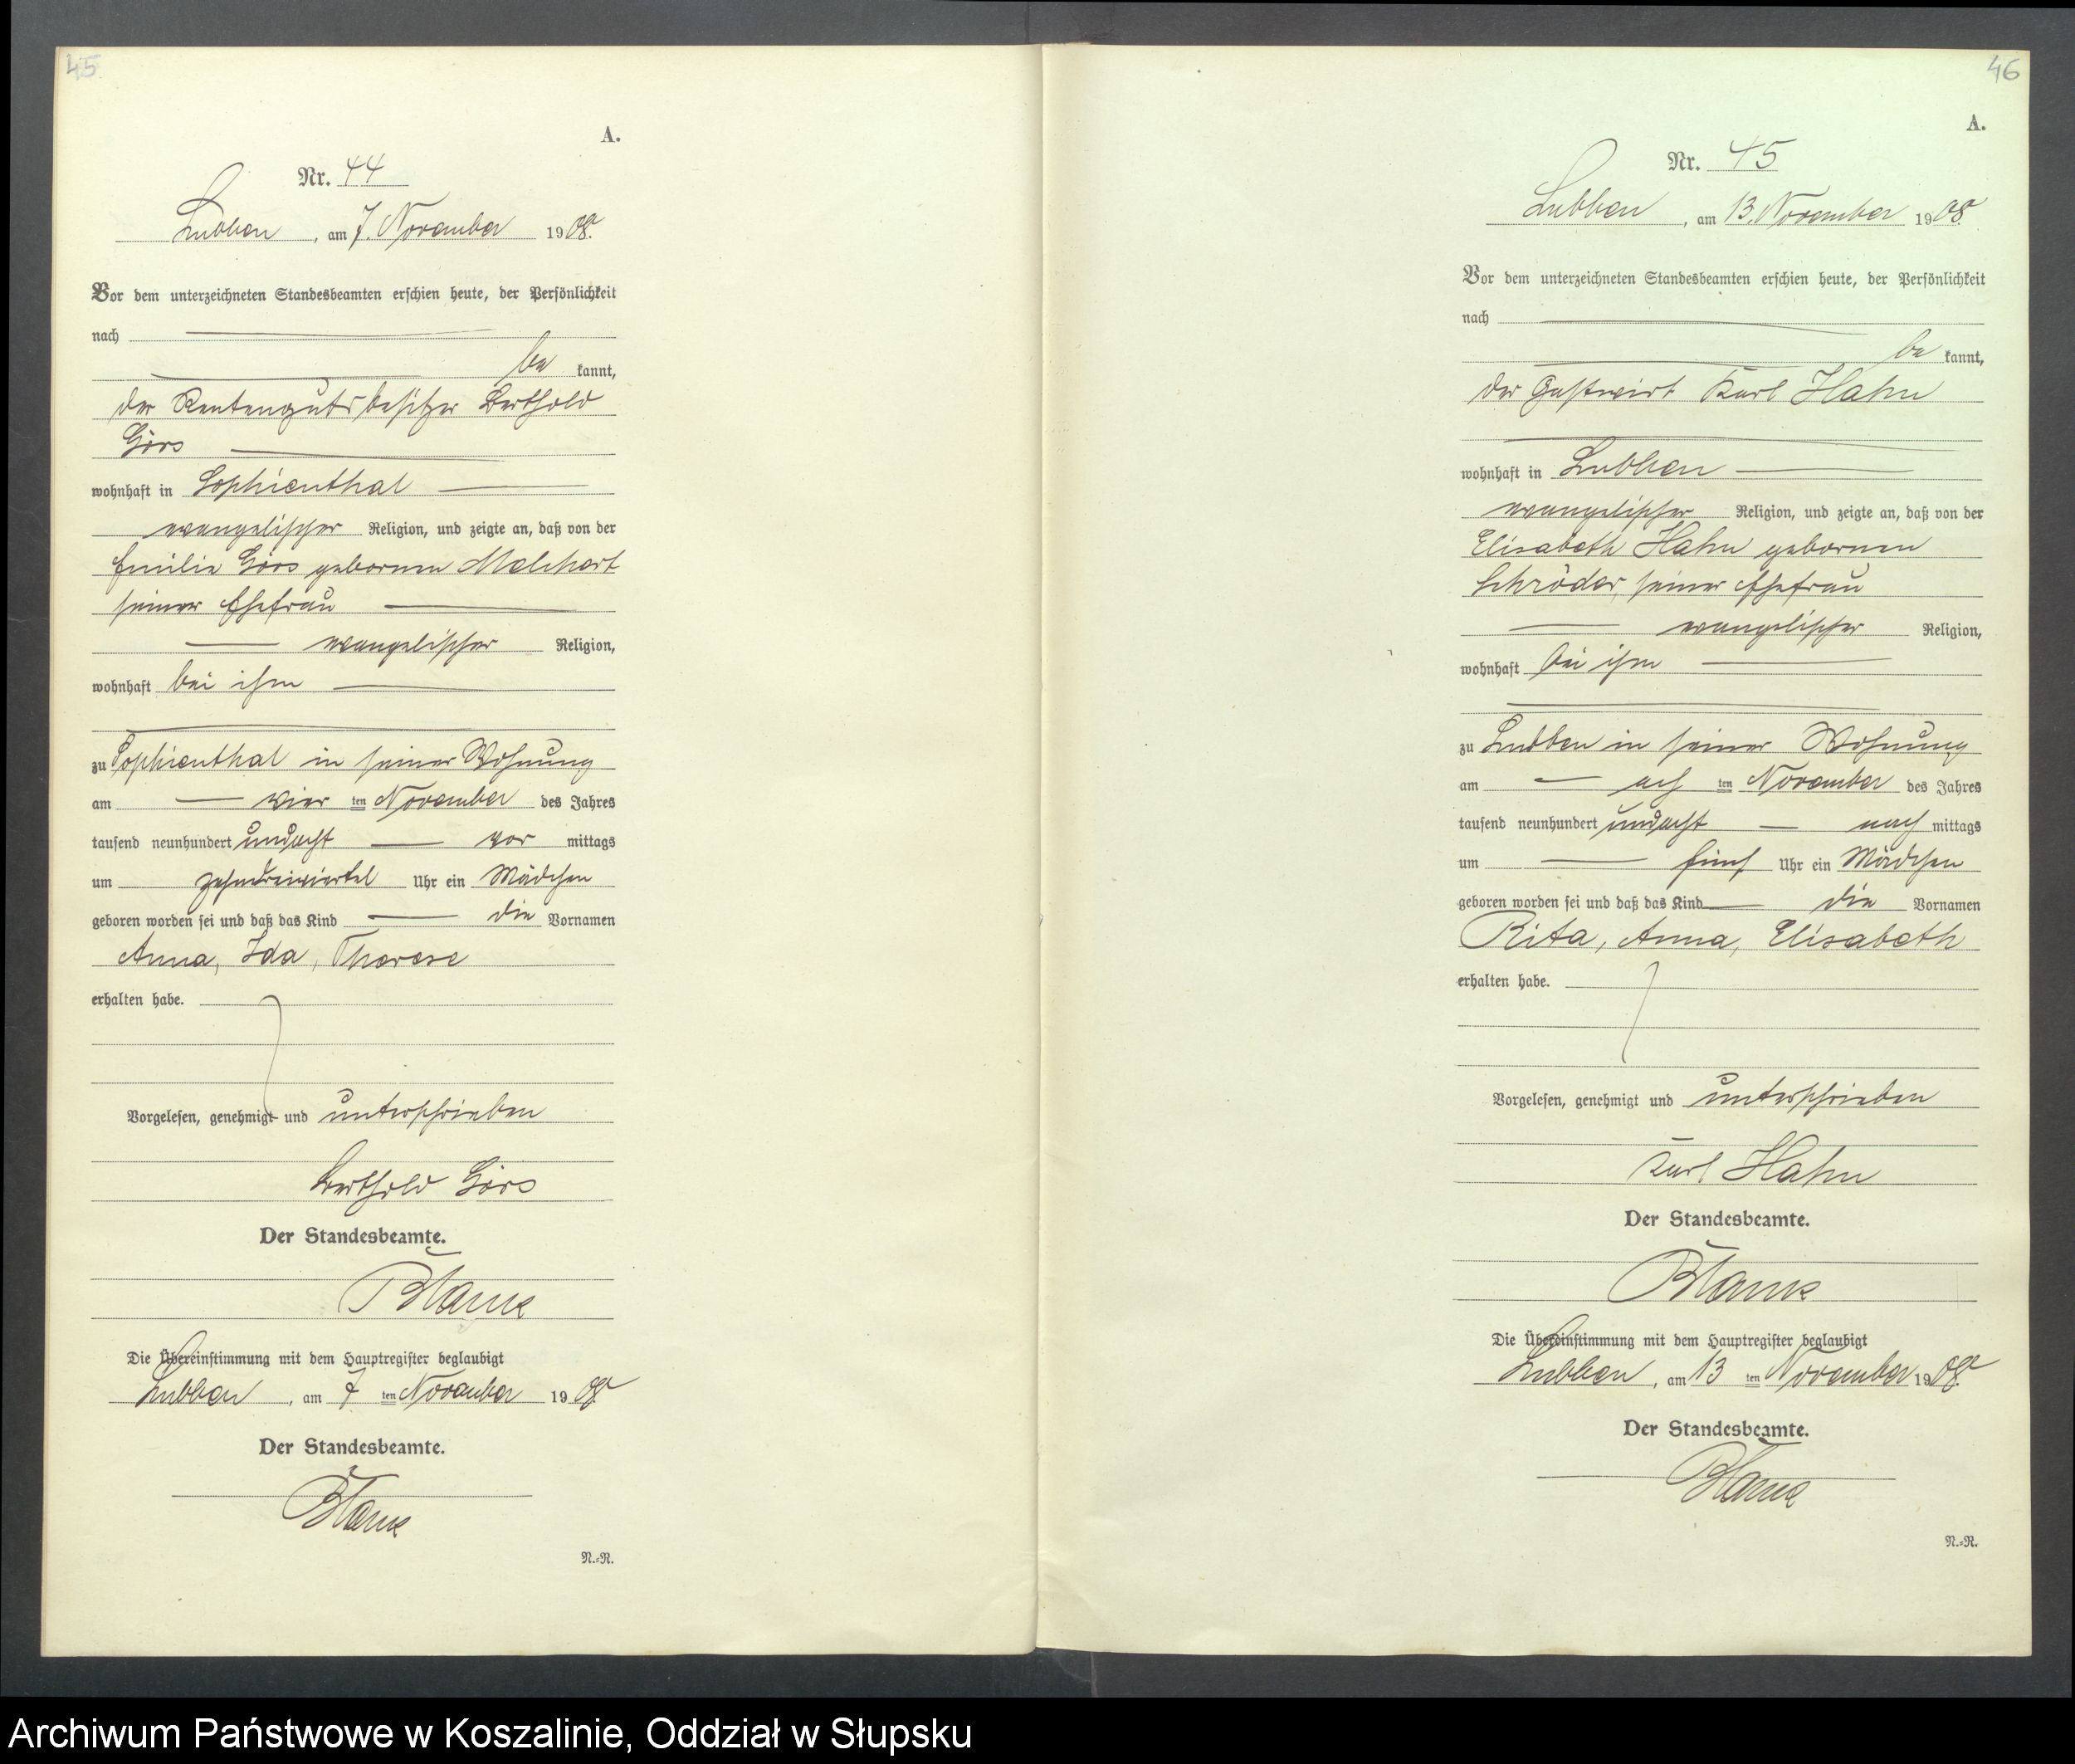 45
A.
Nr. 44
Lubben, am 7. November 1908.
Vor dem unterzeichneten Standesbeamten erschien heute, der Persönlichkeit
nach
be kannt,
der Rentengutsbesitzer Berthold
Görs
wohnhaft in Sophienthal
evangelischer Religion, und zeigte an, daß von der
Emilie Görs geborenen Melchert
seiner Ehefrau
evangelischer Religion,
wohnhaft bei ihm
zu Sophienthal in seiner Wohnung
am vier ten November des Jahres
tausend neunhundert undacht vor mittags
um zehndreiviertel Uhr ein Mädchen
geboren worden sei und daß das Kind die Vornamen
Anna, Ida, Therese
erhalten habe.
Vorgelesen, genehmigt und unterschrieben
Berthold Görs
Der Standesbeamte.
Die Übereinstimmung mit dem Hauptregister beglaubigt
Lubben, am 7 ten November 1908.
Der Standesbeamte.
N.=R.
46
A.
Nr. 45
Lubben, am 13. November 1908
Vor dem unterzeichneten Standesbeamten erschien heute, der Persönlichkeit
nach
be kannt,
der Gastwirt Karl Hahn
wohnhaft in Lubben
evangelischer Religion, und zeigte an, daß von der
Elisabeth Hahn geborenen
Schröder, seiner Ehefrau
evangelischer Religion,
wohnhaft bei ihm
zu Lubben in seiner Wohnung
am ten November des Jahres
tausend neunhundert undacht nach mittags
um fünf Uhr ein Mädchen
geboren worden sei und daß das Kind die Vornamen
Rita, Anna, Elisabeth
erhalten habe.
Vorgelesen, genehmigt und unterschrieben
Karl Hahn
Der Standesbeamte.
Die Übereinstimmung mit dem Hauptregister beglaubigt
Lubben, am 13 ten November 1908.
Der Standesbeamte.
N.=R.
Archiwum Państwowe w Koszalinie, Oddział w Słupsku